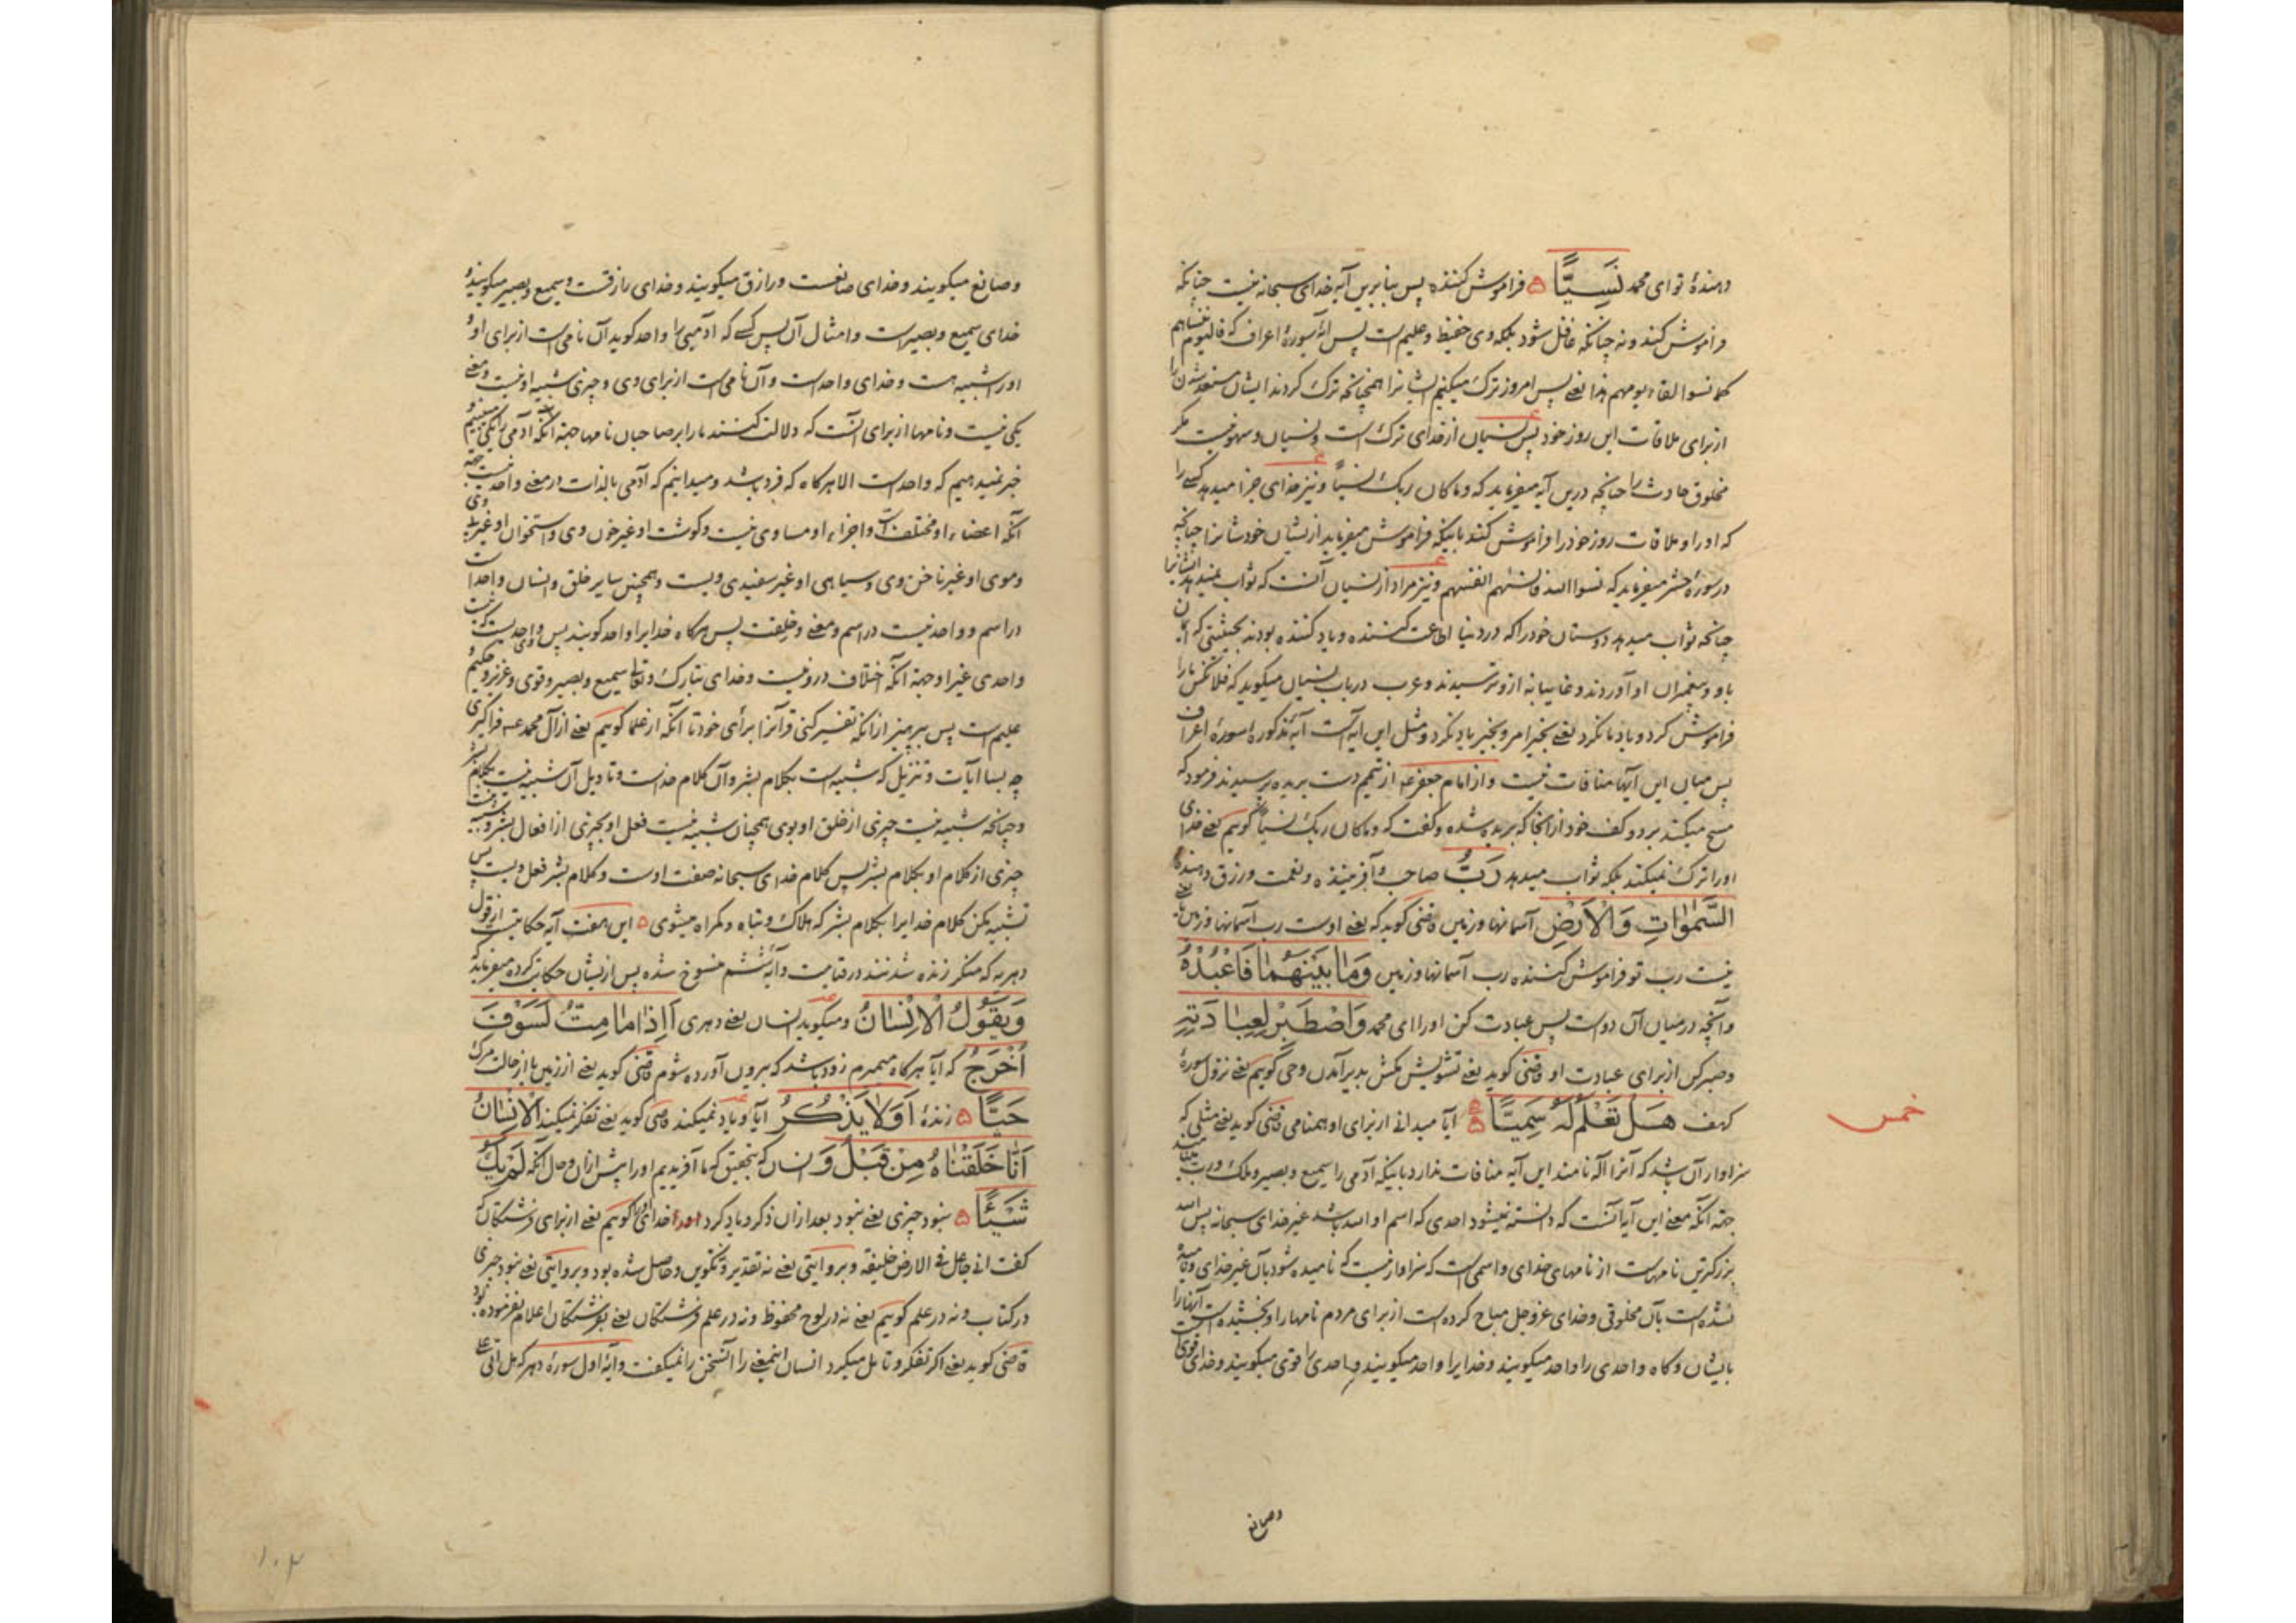 دهندهٔ تو ای محمد نَسِيًّا ۵ فراموش کننده پس بنابرین آیه خدای سبحانه نیست چنانکه
فراموش کند و نه چنانکه غافل شود بلکه وی حفیظ و علیم است پس آیهٔ سورهٔ اعراف که فالیوم ننسیهم
کما نسوا لقاء یومهم هذا یعنی پس امروز ترک میکنیم ایشانرا همچنانکه ترک کردند ایشان مستعد شدن را
از برای ملاقات این روز خود پس نسیان از خدای ترک است و نسیان و سهو نیست مگر
مخلوق حادث را چنانچه درین آیه میفرماید که و ما کان ربک نسیاً و نیز خدای جزا میدهد کسی را
که او را و ملاقات روز خود را فراموش کند باینکه فراموش میفرماید ازیشان خودشانرا چنانکه
در سورهٔ حشر میفرماید که نسوا الله فانسٰهم انفسهم و نیز مراد از نسیان آنست که ثواب نمیدهد ایشانرا
چنانچه ثواب میدهد دوستان خود را که در دنیا اطاعت کننده و یاد کننده بودند بحیثیتی که ایمان
باو و پیغمبران او آوردند و غایبانه ازو ترسیدند و عرب در باب نسیان میگوید که فلانکس ما را
فراموش کرد و یاد ما نکرد یعنی بخیر امر و بخیر یاد نکرد و مثل این آیه است آیهٔ مذکورهٔ سورهٔ اعراف
پس میان این آیها منافات نیست و از امام جعفر عه از تیمم دست بریده پرسیدند فرمود که
مسح میکند بر دو کف خود از آنجا که بریده شده و گفت که و ما کان ربک نسیاً گوییم یعنی خدای
او را ترک نمیکند بلکه ثواب میدهد رَبُّ صاحب و آفریننده و نعمت و رزق دهندهٔ
السَّمٰوَاتِ وَالْاَرْضِ آسمانها و زمین قاضی گوید که یعنی اوست رب آسمانها و زمین یعنی
نیست رب تو فراموش کننده رب آسمانها و زمین وَمَا بَيْنَهُمَا فَاعْبُدْهُ
و آنچه در میان آن دو است پس عبادت کن او را ای محمد وَاصْطَبِرْ لِعِبَادَتِهِ
و صبر کن از برای عبادت او قاضی گوید یعنی تشویش مکش بدیر آمدن وحی گوییم یعنی نزول سورهٔ
کهف هَلْ تَعْلَمُ لَهُ سَمِيًّا ۵ آیا میدانی از برای او همنامی قاضی گوید یعنی مثلی که
سزاوار آن باشد که آنرا اله نامند این آیه منافات ندارد باینکه آدمی را سمیع و بصیر و ملک و رب مینامند
جهة آنکه معنی این آیه آنست که دانسته نمیشود احدی که اسم او الله باشد غیر خدای سبحانه پس الله
بزرگترین نامهاست از نامهای خدای و اسمی است که سزاوار نیست که نامیده شود بآن غیر خدای و نامیده
نشده است بآن مخلوقی و خدای عزوجل مباح کرده است از برای مردم نامها را و بخشیده است آنها را
بایشان و گاه واحدی را واحد میگویند و خدایرا واحد میگویند و احدی را قوی میگویند و خدای قوی است
خمس
وصانع
وصانع میگویند و خدای صانعست و رازق میگویند و خدای رازقست و سمیع و بصیر میگویند و
خدای سمیع و بصیر است و امثال آن پس کسی که آدمی را واحد گوید آن نامی است از برای او و
او را شبیه هست و خدای واحد است و آن نامی است از برای وی و چیزی شبیه او نیست و معنی
یکی نیست و نامها از برای آنست که دلالت کنند ما را بر صاحبان نامها جهة آنکه آدمی را یکی می‌بینیم و
خبر نمیدهیم که واحد است الا هرگاه که فرد باشد و میدانیم که آدمی بالذات در معنی واحد نیست جهة
آنکه اعضاء او مختلف است و اجزاء او مساوی نیست و گوشت او غیر خون وی و استخوان او غیر پی وی
و موی او غیر ناخن وی و سیاهی او غیر سفیدی ویست و همچنین سایر خلق و انسان واحد است
در اسم و واحد نیست در اسم و معنی و خلقت پس هرگاه خدایرا واحد گویند پس وی واحدیست که نیست
واحدی غیر او جهة آنکه اختلاف درو نیست و خدای تبارک و تعالی سمیع و بصیر و قوی و عزیز و حکیم و
علیم است پس بپرهیز ازانکه تفسیر کنی قرآنرا برأی خود تا آنکه از علما گوییم یعنی از آل محمد عه فراگیری
چه بسا آیات و تنزیل که شبیه است بکلام بشر و آن کلام خداست و تاویل آن شبیه نیست بکلام بشر
و چنانچه شبیه نیست چیزی از خلق او بوی همچنان شبیه نیست فعل او بچیزی از افعال بشر و شبیه نیست
چیزی از کلام او بکلام بشر پس کلام خدای سبحانه صفت اوست و کلام بشر فعل ویست پس
تشبیه مکن کلام خدایرا بکلام بشر که هلاک و تباه و گمراه میشوی ۵ این هفت آیه حکایتست از قول
دهریه که منکر زنده شدنند در قیامت و آیهٔ ششم منسوخ شده پس ازیشان حکایت کرده میفرماید که
وَيَقُولُ الْاِنْسَانُ و میگوید انسان یعنی دهری أَاِذَا مَا مِتُّ لَسَوْفَ
أُخْرَجُ که آیا هرگاه میمیرم زود باشد که بیرون آورده شوم قاضی گوید یعنی از زمین یا از حالت مرگ
حَيًّا ۵ زنده أَوَلَا يَذْكُرُ آیا و یاد نمیکند قاضی گوید یعنی تفکر نمیکند الْاِنْسَانُ
أَنَّا خَلَقْنَاهُ مِنْ قَبْلُ وَ انسان که بتحقیق که ما آفریدیم او را پیش ازان و حال آنکه لَمْ يَكُ
شَيْئًا ۵ نبود چیزی یعنی نبود بعد ازان ذکر و یاد کرد او را خدای گوییم یعنی از برای فرشتگان که
گفت انی جاعل فی الارض خلیفة و بروایتی یعنی نه تقدیر و تکوین و حاصل شده بود و بروایتی یعنی نبود چیزی
در کتاب و نه در علم گوییم یعنی نه در لوح محفوظ و نه در علم فرشتگان یعنی بفرشتگان اعلام نفرموده بود
قاضی گوید یعنی اگر تفکر و تامل میکرد انسان اینمعنی را آنسخن را نمیگفت و آیهٔ اول سورهٔ دهر که هل اتی علی
۱۰۴